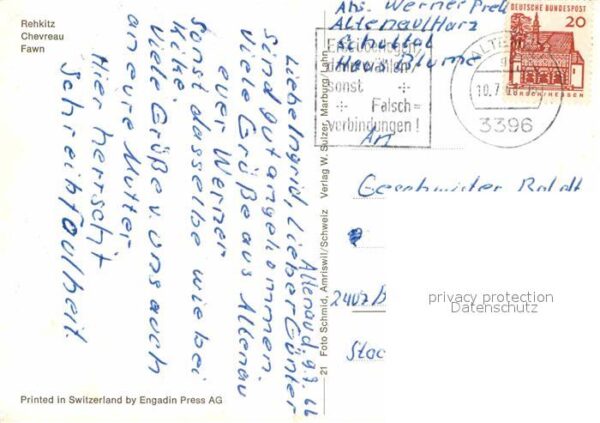 Rehkitz
Chevreau
Fawn
Altenau d. 9.7.66
Liebe Ingrid, Lieber Günter
sind gut angekommen.
Viele Grüße aus Altenau
euer Werner
Sonst dasselbe wie bei
Kike.
Viele Grüße v. uns auch
an eure Mutter
Hier herrscht
Schreibfaulheit.
Printed in Switzerland by Engadin Press AG
21 Foto Schmid, Amriswil/Schweiz Verlag W. Sulzer, Marburg/Lahn
Abs. Werner
Altenau/Harz
Schultal
Haus Blume
Erst überlegen,
dann wählen,
sonst
Falsch=
verbindungen!
An
DEUTSCHE BUNDESPOST
20
LORSCH/HESSEN
10.7
3396
Geschwister
2407
privacy protection
Datenschutz